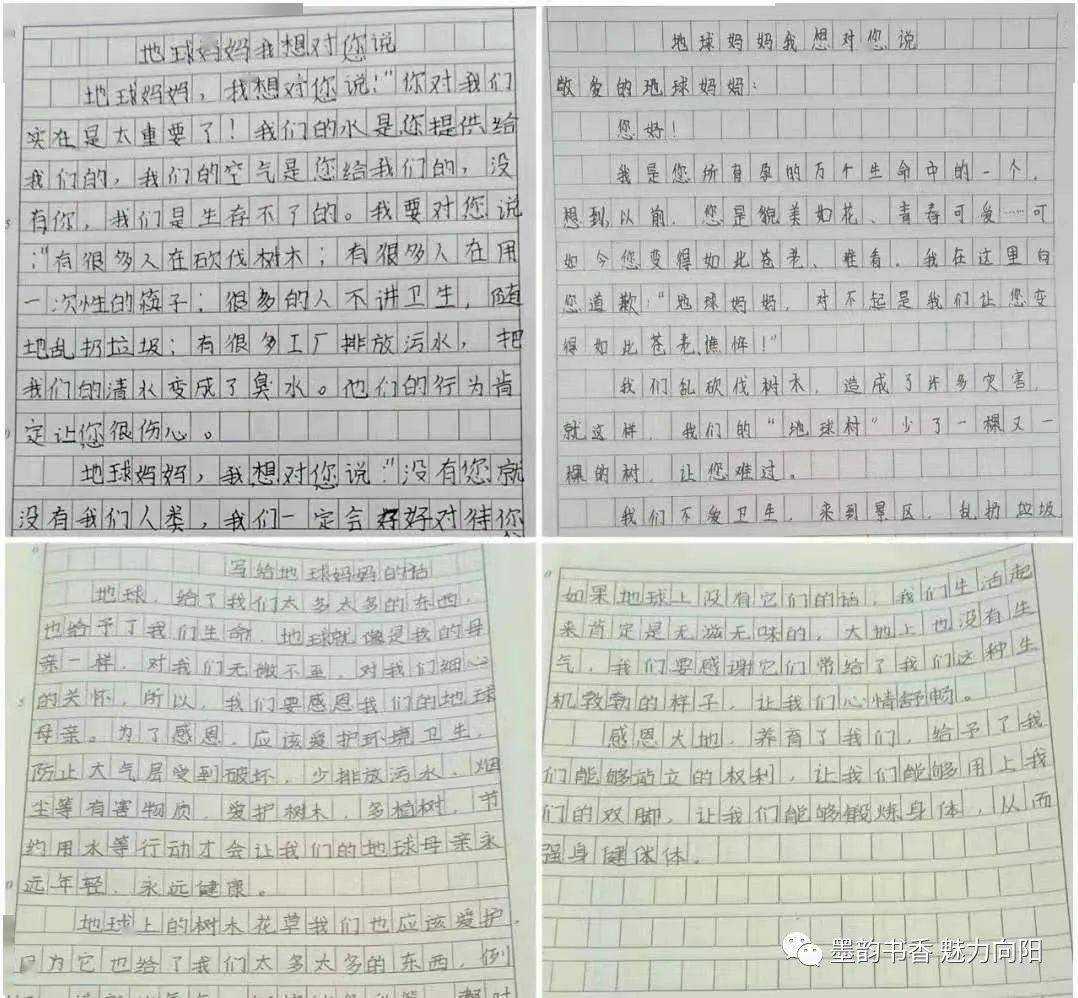 地球妈妈我想对您说
地球妈妈，我想对您说："你对我们
实在是太重要了！我们的水是您提供给
我们的，我们的空气是您给我们的，没
有你，我们是生存不了的。我要对您说
："有很多人在砍伐树木；有很多人在用
一次性的筷子；很多的人不讲卫生，随
地乱扔垃圾；有很多工厂排放污水，把
我们的清水变成了臭水。他们的行为肯
定让您很伤心。
地球妈妈，我想对您说："没有您就
没有我们人类，我们一定会好好对待您
地球妈妈我想对您说
敬爱的地球妈妈：
您好！
我是您所有孕的万个生命中的一个，
想到以前，您是貌美如花、青春可爱……可
如今您变得如此苍老、难看，我在这里向
您道歉："地球妈妈，对不起是我们让您变
得如此苍老、憔悴！"
我们乱砍伐树木，造成了许多灾害，
就这样，我们的"地球村"少了一棵又一
棵的树，让您难过。
我们不爱卫生，来到景区，乱扔垃圾
写给地球妈妈的信
地球，给了我们太多太多的东西，
也给予了我们生命，地球就像是我的母
亲一样，对我们无微不至，对我们细心
的关怀，所以，我们要感恩我们的地球
母亲。为了感恩，应该爱护环境卫生，
防止大气层受到破坏，少排放污水，烟
尘等有害物质，爱护树木，多植树，节
约用水等行动才会让我们的地球母亲永
远年轻，永远健康。
地球上的树木花草我们也应该爱护，
因为它也给了我们太多太多的东西，例
如果地球上没有它们的话，我们生活起
来肯定是无滋无味的，大地上也没有生
气，我们要感谢它们带给了我们这种生
机勃勃的样子，让我们心情舒畅。
感恩大地，养育了我们，给予了我
们能够站立的权利，让我们能够用上我
们的双脚，让我们能够锻炼身体，从而
强身健体体。
墨韵书香 魅力向阳